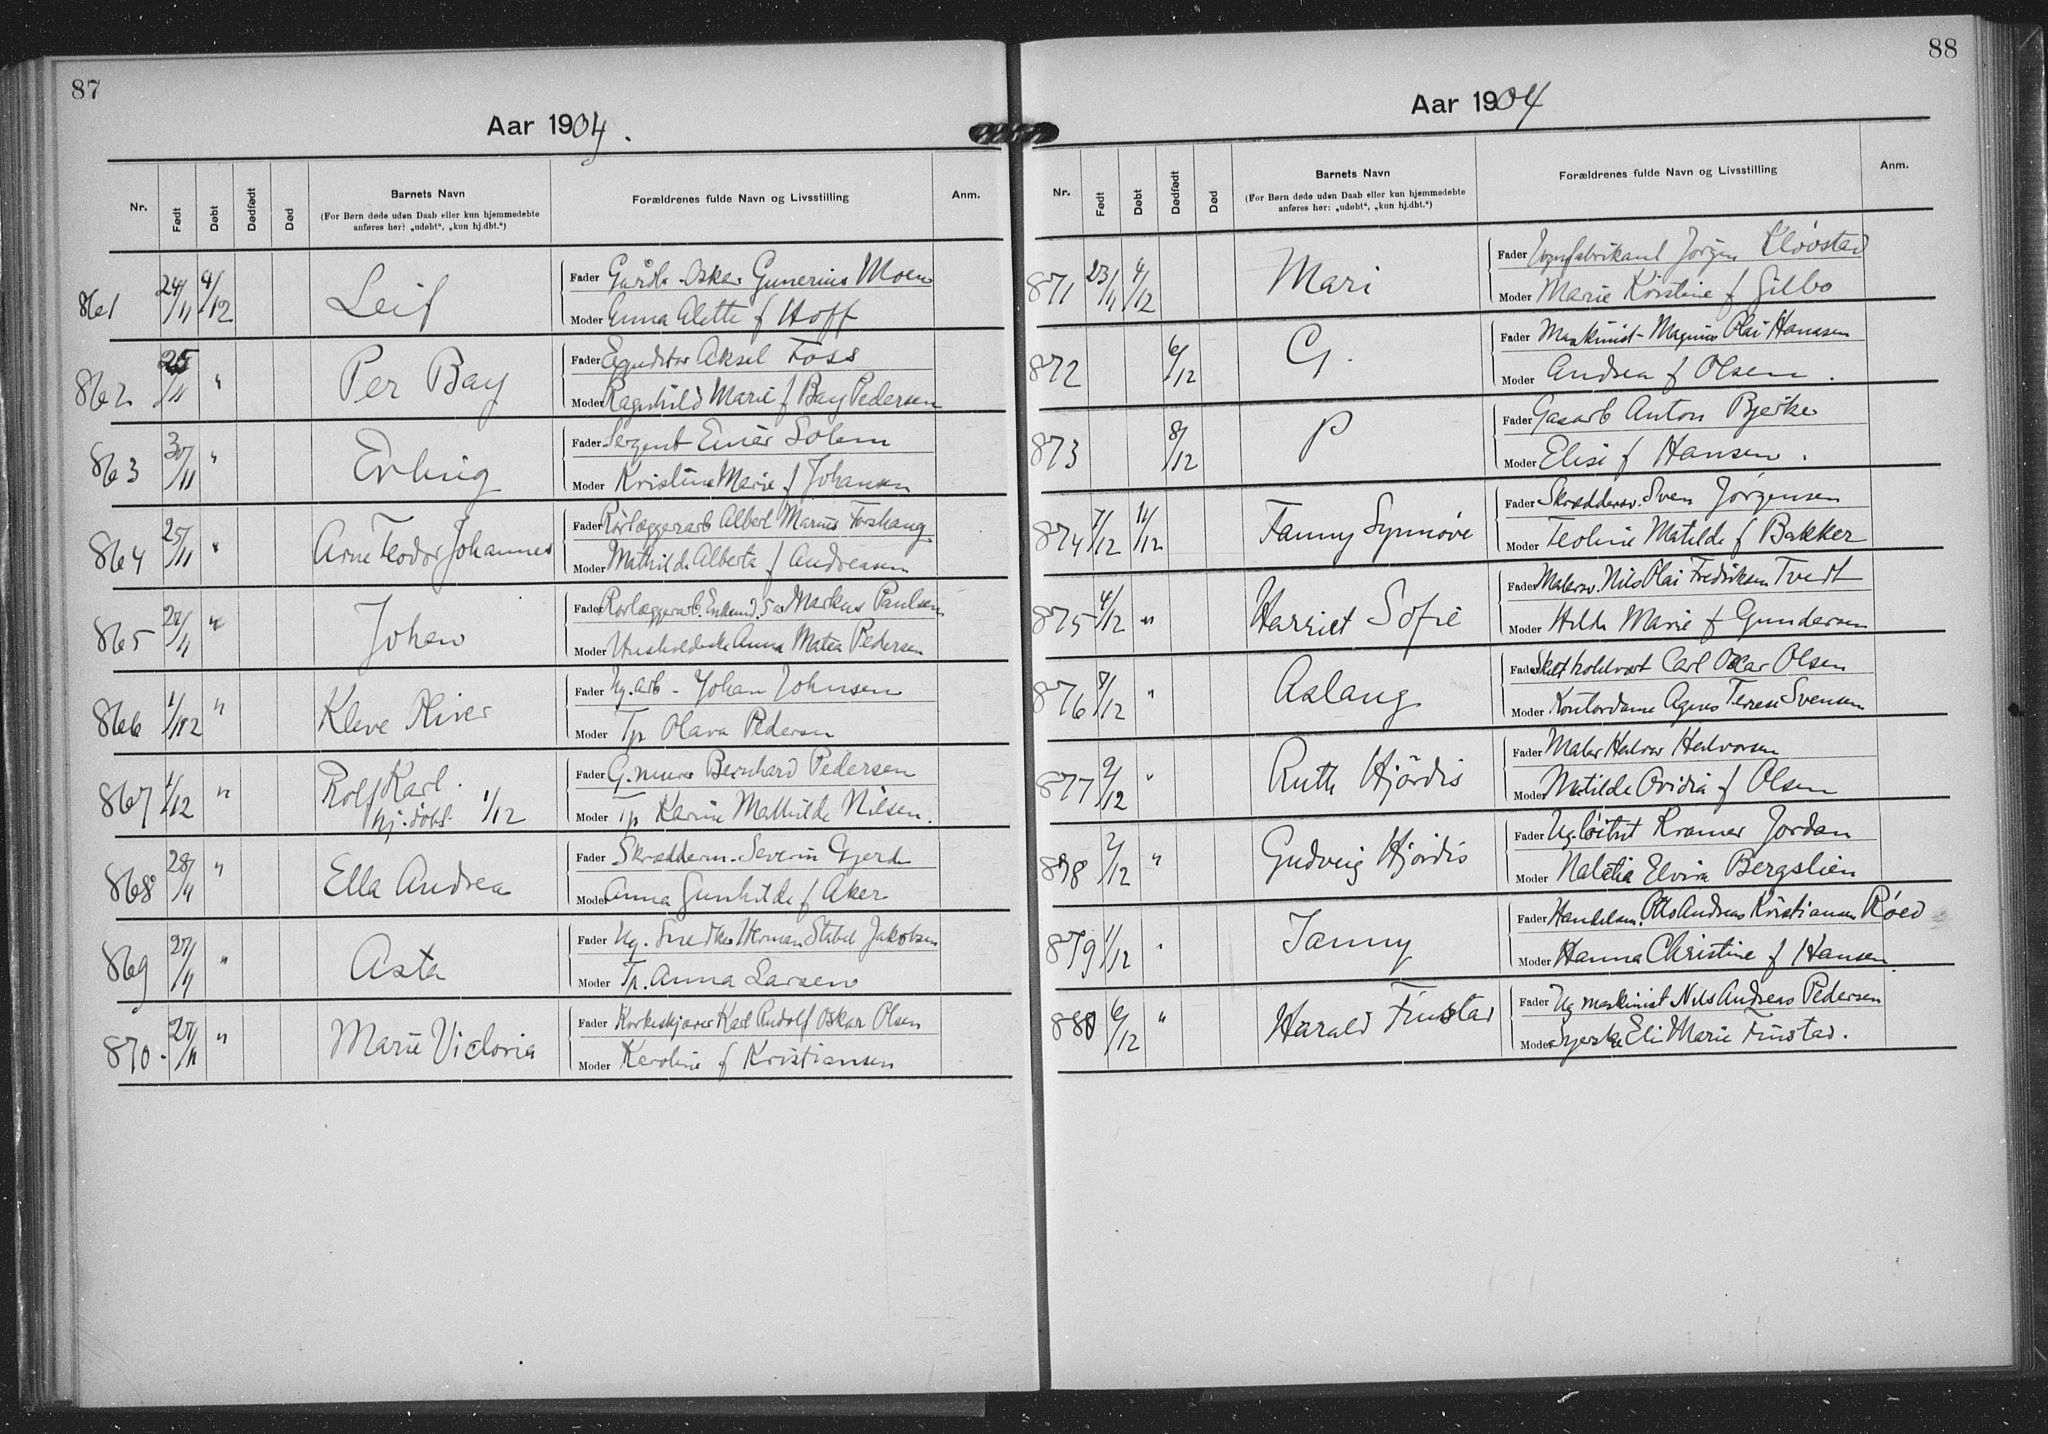 87
Aar 1904.
Nr. Født Døbt Dødfødt Død Barnets Navn Forældrenes fulde Navn og Livsstilling Anm.
(For Børn døde uden Daab eller kun hjemmedøbte
anføres her: „udøbt“, „kun hj.dbt.“)
Fader Gårdb. Oskar Gunerius Moen
861 24/11 4/12 Leif
Moder Anna Alette f Hoff
Fader Expeditør Aksel Foss
862 25/11 " Per Bay
Moder Ragnhild Marie f Bay Pedersen
Fader Sergent Einar Solem
863 30/11 " Erling
Moder Kristine Marie f Johansen
Fader Rørlæggerarb Albert Marius Forshaug
864 25/11 " Arne Teodor Johannes
Moder Mathilde Alberta f Andreasen
Fader Rørlæggerarb. Enkemd. Markus Paulsen
865 27/11 " Johan
Moder Husholderske Anna Matea Pedersen
Fader Ug. arb - Johan Johnsen
866 1/12 " Kleve Oliver
Moder Tp Olava Pedersen
Fader G. murer Bernhard Pedersen
867 1/12 " Rolf Karl.
hj. døbt 1/12
Moder Tp Karine Mathilde Nilsen.
Fader Skrædderm. Severin Gjerde
868 28/11 " Ella Andrea
Moder Anna Gunhilde f Aker
Fader Ug. Snedker Herman Stabel Jakobsen
869 27/11 " Asta
Moder Tp. Anna Larsen
Fader Korkeskjærer Karl Rudolf Oskar Olsen
870. 27/11 " Marie Victoria
Moder Karoline f Kristiansen
88
Aar 1904
Nr. Født Døbt Dødfødt Død Barnets Navn Forældrenes fulde Navn og Livsstilling Anm.
(For Børn døde uden Daab eller kun hjemmedøbte
anføres her: „udøbt“, „kun hj.dbt.“)
Fader Vognfabrikant Jørgen Kløvstad
871 23/11 4/12 Mari
Moder Marie Kirstine f Gilbo
Fader Maskinist - Magnus Olai Hanssen
872 6/12 G.
Moder Andrea f Olsen.
Fader Gasarb Anton Bjerke
873 8/12 P
Moder Elise f Hansen.
Fader Skræddersv. Sven Jørgensen
874 7/12 11/12 Fanny Synnøve
Moder Teoline Matilde f Bakker
Fader Malersv. Nils Olai Fredriksen Tvedt
875 4/12 " Harriet Sofie
Moder Hilda Marie f Gundersen
Fader Carl Oscar Olsen
876 7/12 " Aslaug
Moder Kontordame Agnes Terese Svensen
Fader Maler Halvor Halvorsen
877 9/12 " Ruth Hjördis
Moder Matilde Ovidia f Olsen
Fader Ug. løitnt Kramer Jordan
878 2/12 " Gudveig Hjordis
Moder Natalia Elvira Bergslien
Fader Handelsm. Otto Andreas Kristiansen Røed
879 1/12 " Fanny
Moder Hanna Christine f Hansen
Fader Ug maskinist Nils Andreas Pedersen
880 6/12 " Harald Finstad
Moder Syerske Eli Marie Finstad.